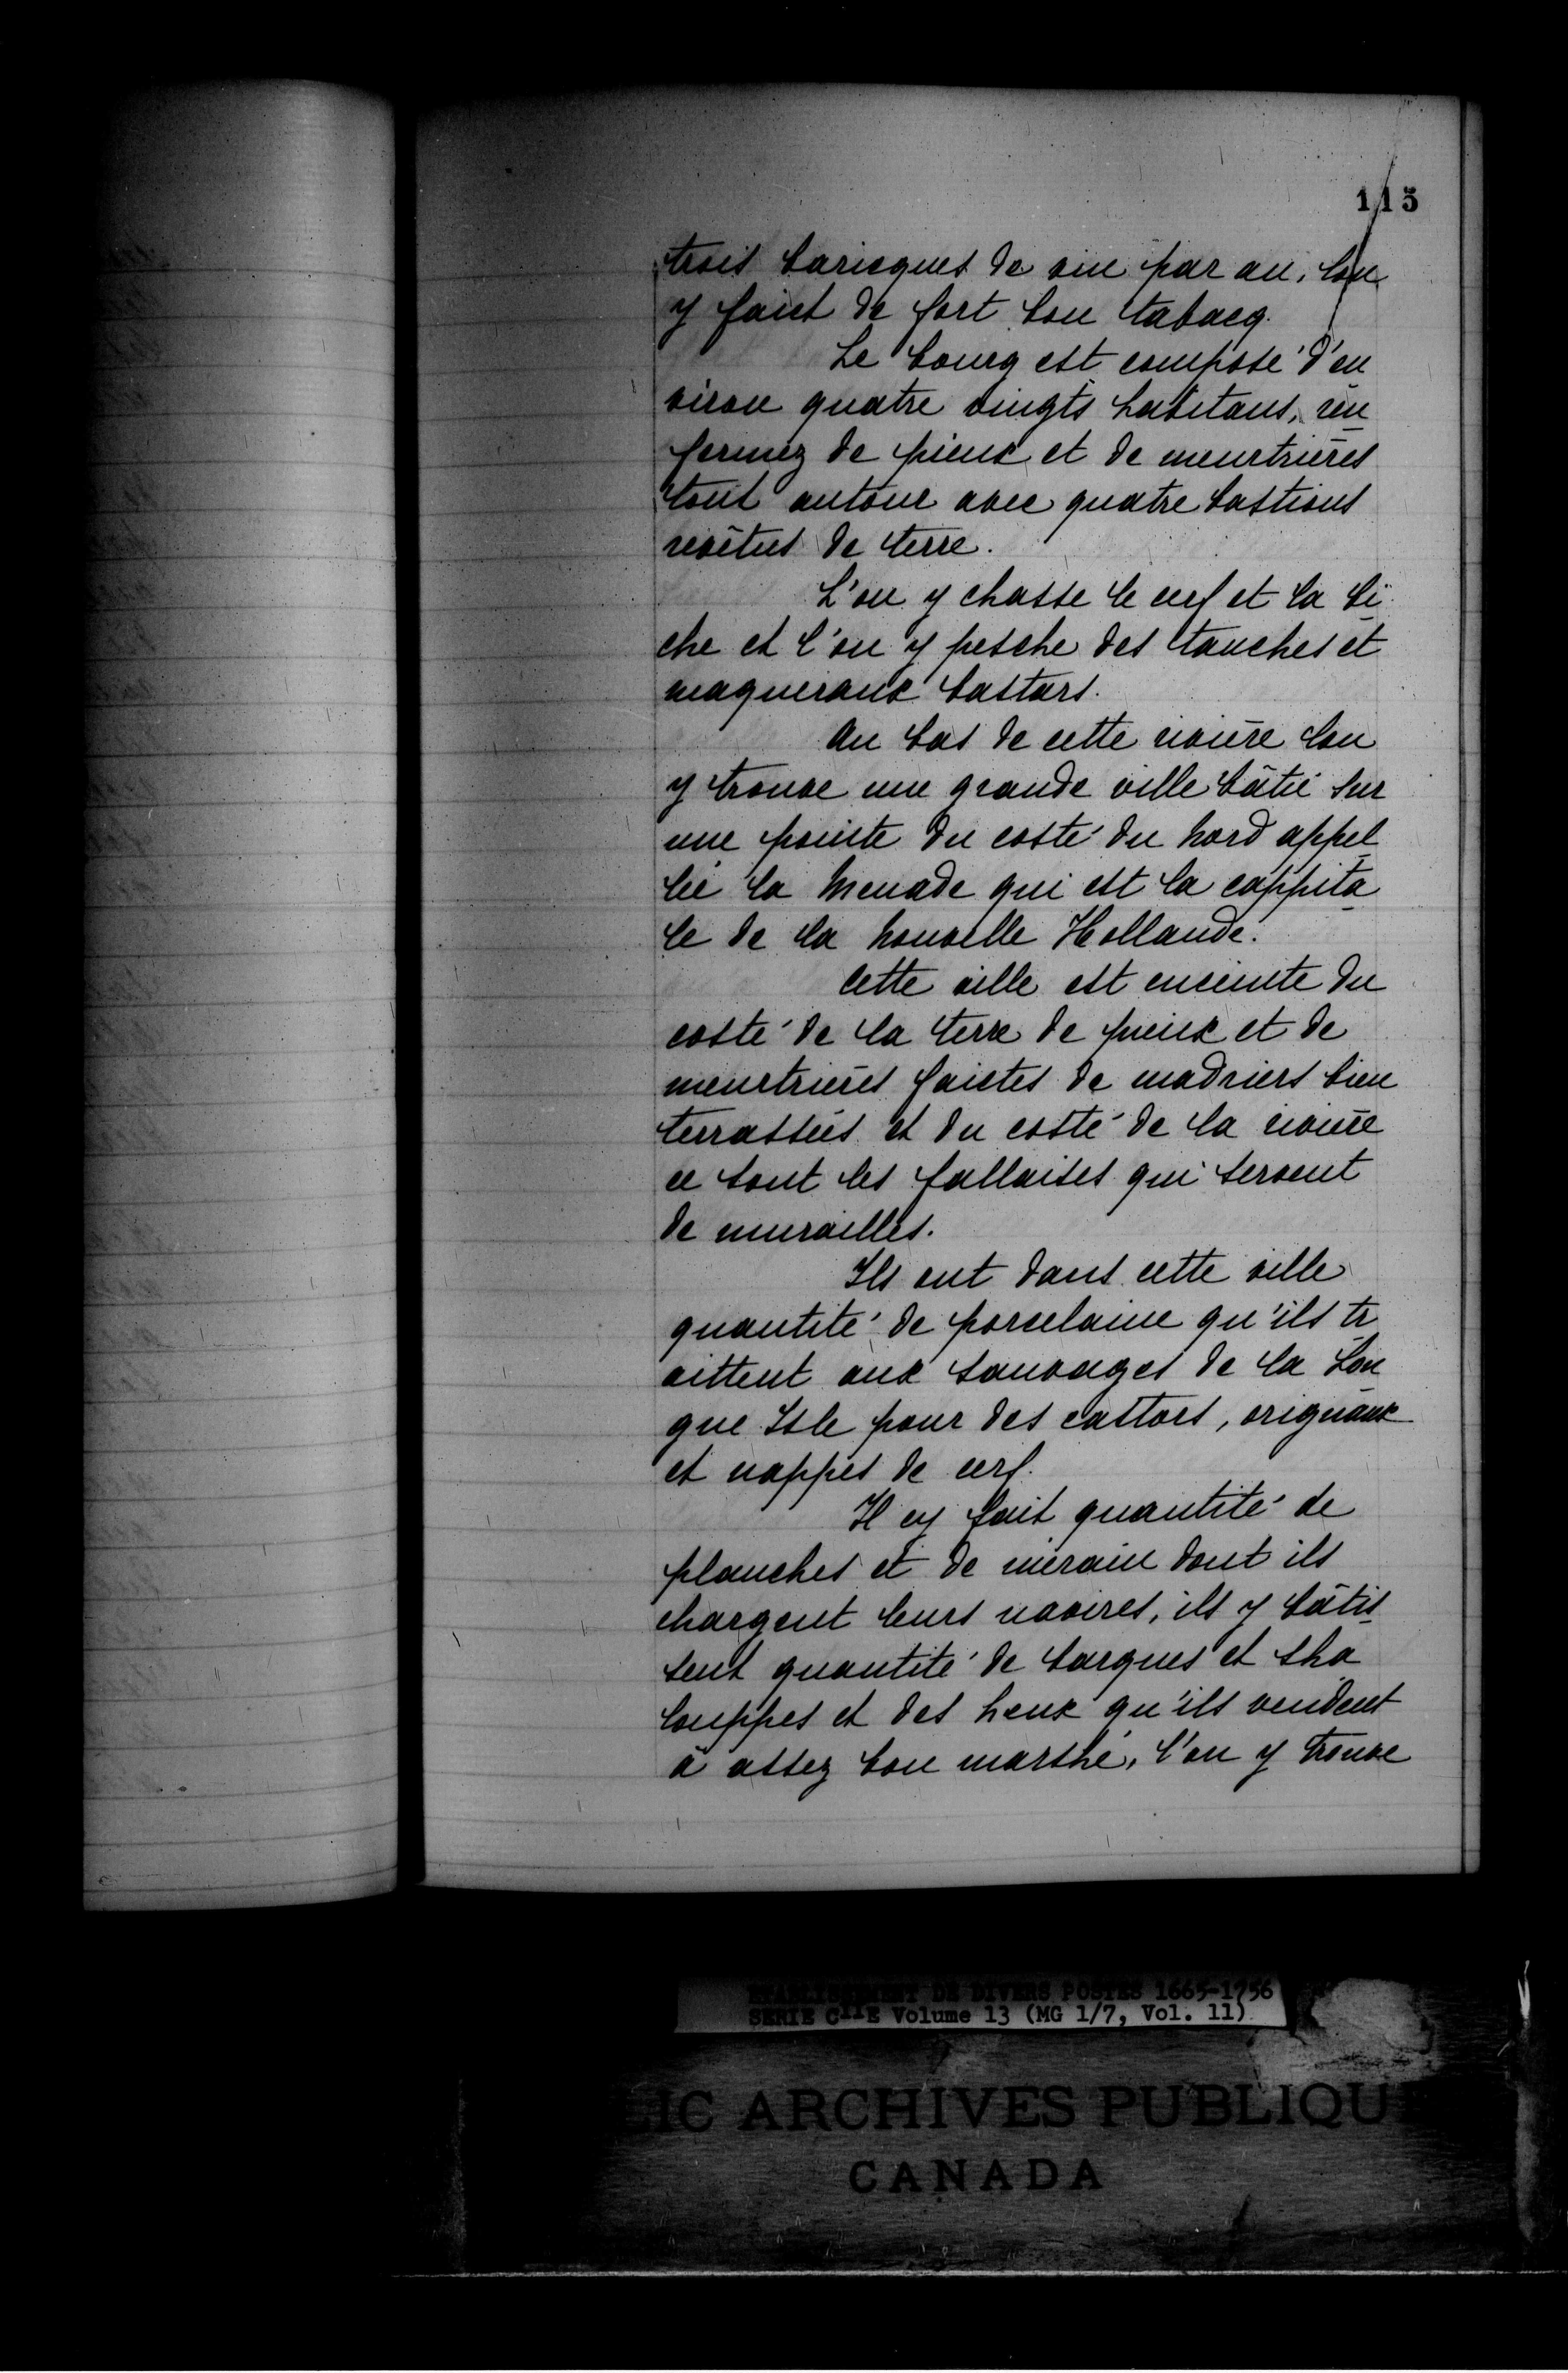 115
trois baricques de vin par an, l'on
y faict de fort bon tabacq.
Le bourg est composé d'en
viron quatre vingts habitans, ren
fermez de pieux et de meurtrières
tout autour avec quatre bastions
revêtus de terre.
L'on y chasse le cerf et la bi
che et l'on y pesche des tanches et
maqueraux bastars.
Au bas de cette rivière l'on
y trouve une grande ville bâtie sur
une pointe du costé du Nord appel
lée la Menade qui est la cappita
le de la Nouvelle Hollande.
Cette ville est enceinte du
costé de la terre de pieux et de
meurtrières faictes de madriers bien
terrassées et du costé de la rivière
ce sont les fallaises qui servent
de murailles.
Ils ont dans cette ville
quantité de porcelaine qu'ils tr
aittent aux sauvages de la Lon
gue Isle pour des castors, orignaux
et nappes de cerf.
Il cy fait quantité de
planches et de mérain dont ils
chargent leurs navires, ils y bâtis
sent quantité de barques et cha
louppes et des heux qu'ils vendent
à assez bon marché, l'on y trouve
ETABLISSEMENT DE DIVERS POSTES 1665-1756
SERIE C11E Volume 13 (MG 1/7, Vol. 11)
LIC ARCHIVES PUBLIQU
CANADA